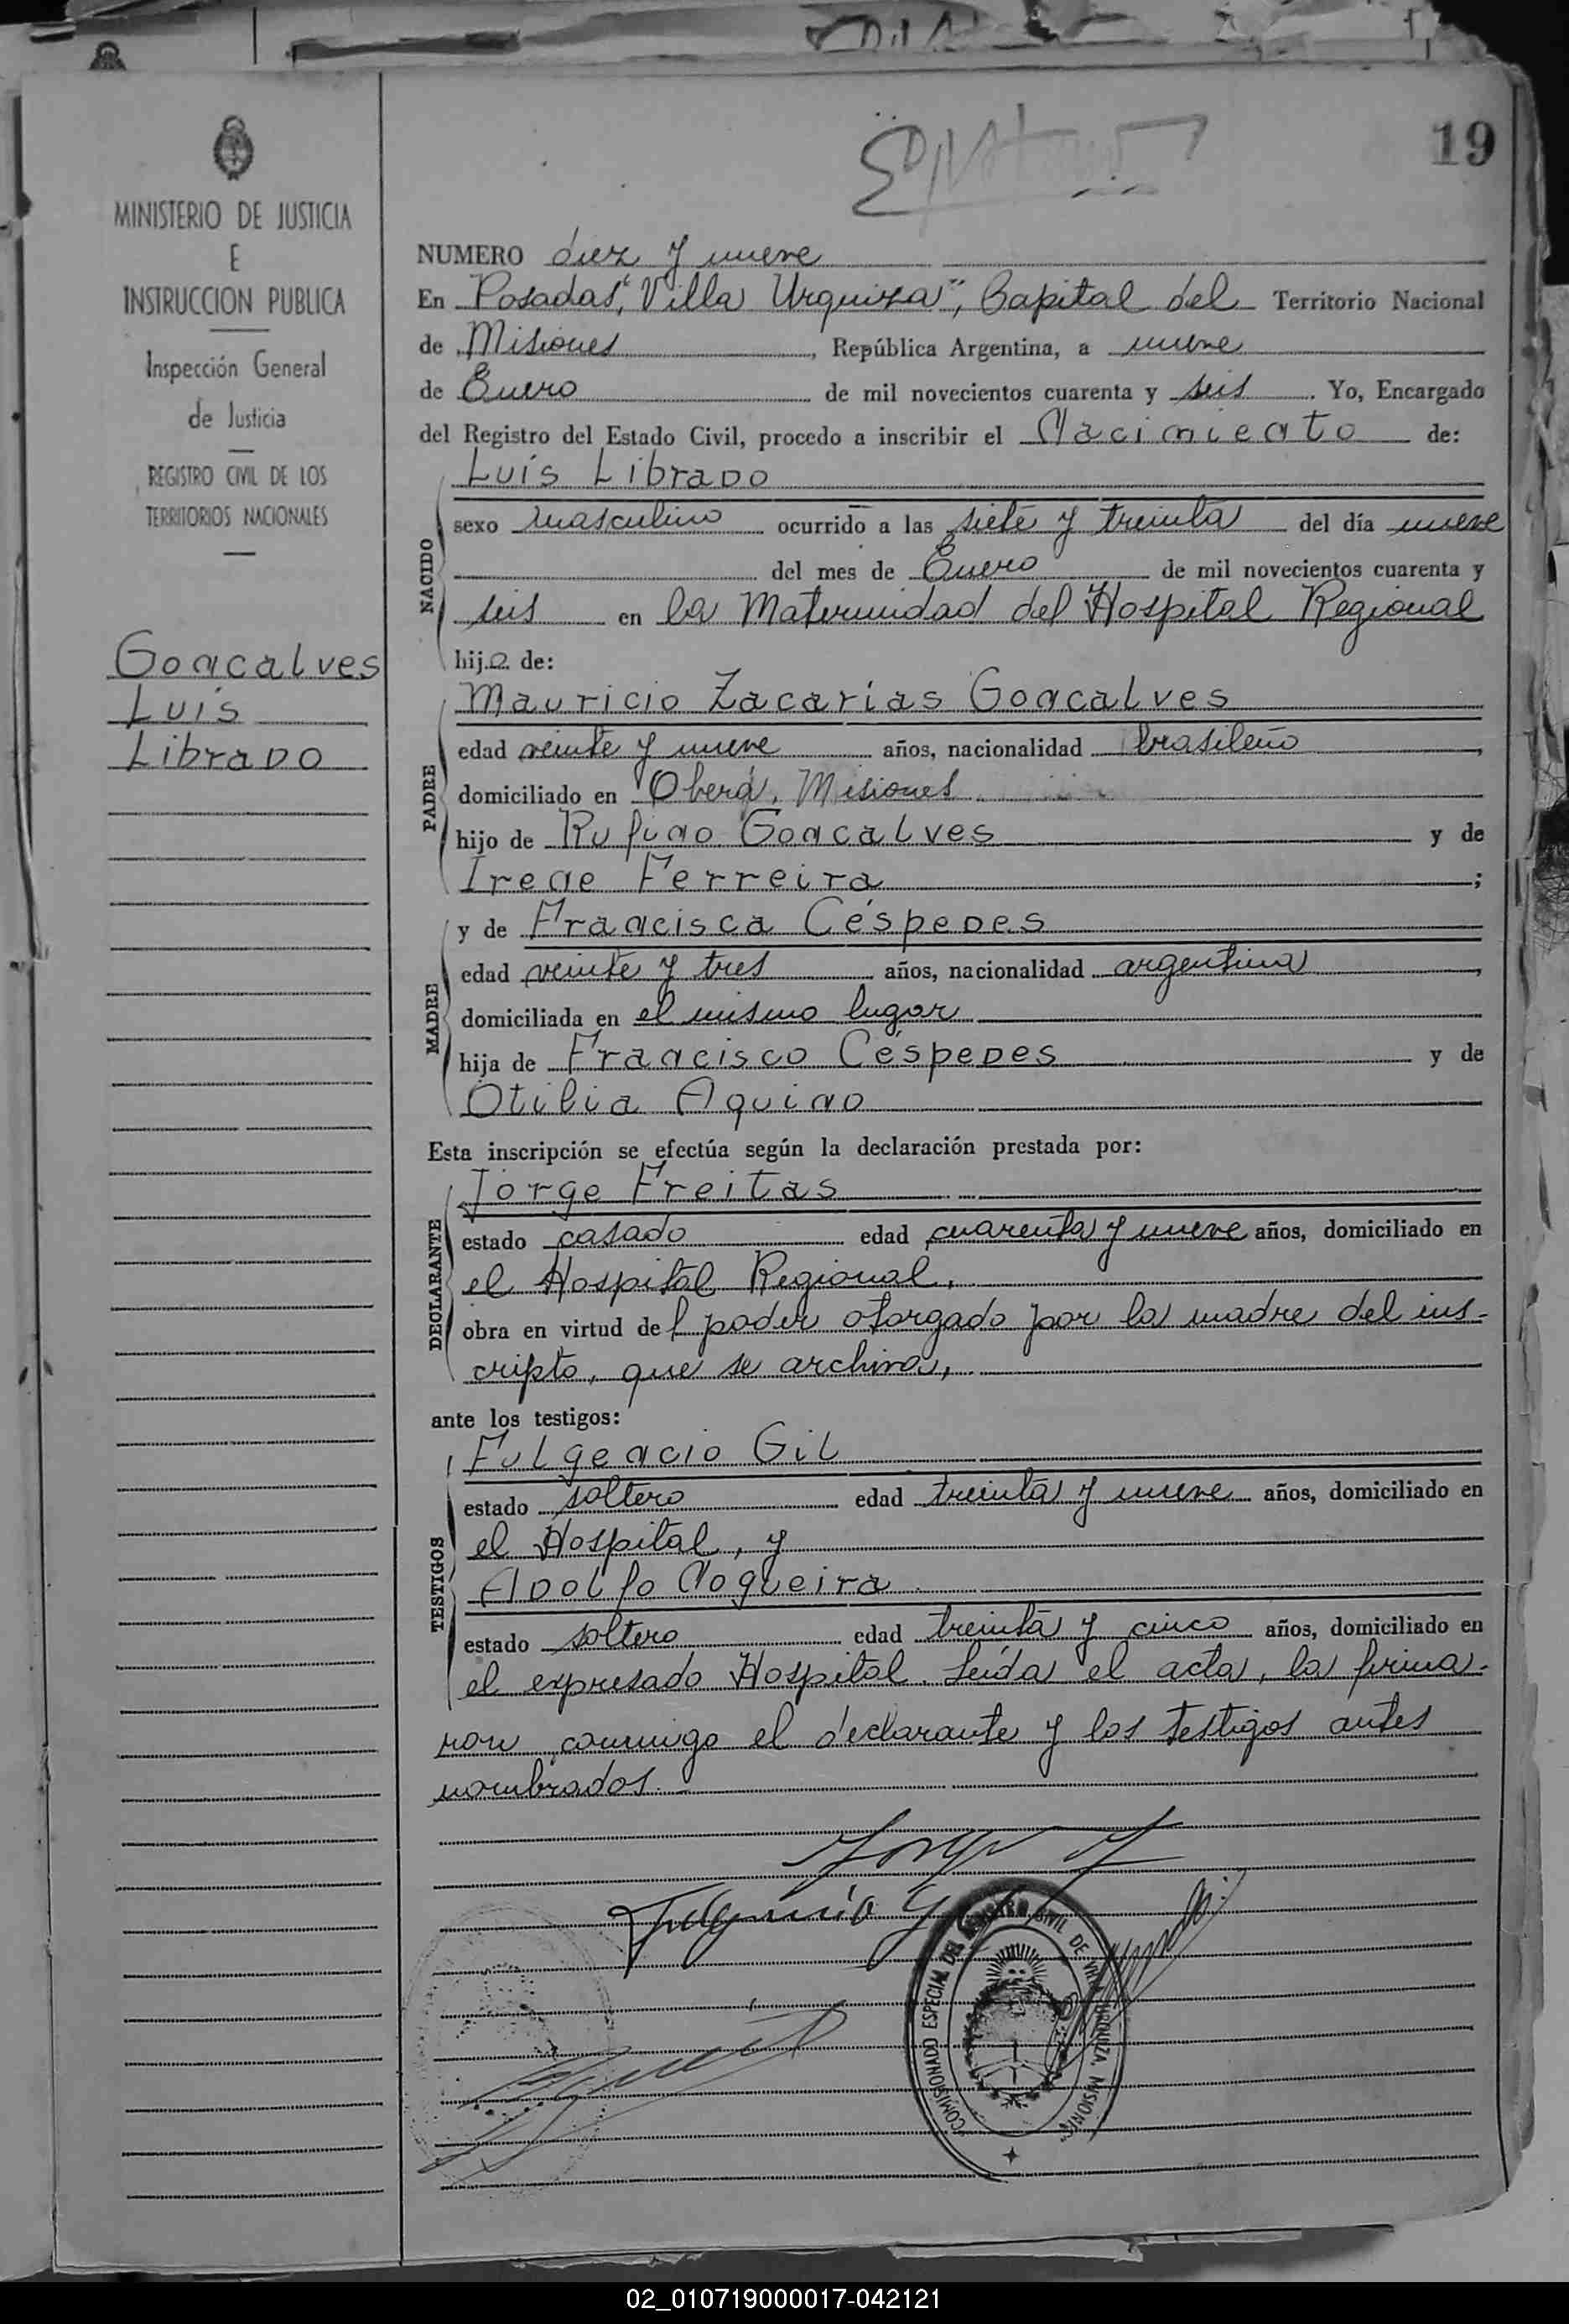 19
MINISTERIO DE JUSTICIA
E
INSTRUCCION PUBLICA
Inspección General
de Justicia
REGISTRO CIVIL DE LOS
TERRITORIOS NACIONALES
Goncalves
Luis
Librado
NUMERO diez y nueve
En Posadas, "Villa Urquiza", Capital del Territorio Nacional
de Misiones, República Argentina, a nueve
de Enero de mil novecientos cuarenta y seis. Yo, Encargado
del Registro del Estado Civil, procedo a inscribir el Nacimiento de:
Luis Librado
NACIDO
sexo masculino ocurrido a las siete y treinta del día nueve
del mes de Enero de mil novecientos cuarenta y
seis en la Maternidad del Hospital Regional
hijo de:
Mauricio Zacarías Goncalves
PADRE
edad veinte y nueve años, nacionalidad brasileño,
domiciliado en Oberá, Misiones
hijo de Rufino Goncalves y de
Irene Ferreira;
y de Francisca Céspedes
MADRE
edad veinte y tres años, nacionalidad argentina,
domiciliada en el mismo lugar
hija de Francisco Céspedes y de
Otilia Aquino
Esta inscripción se efectúa según la declaración prestada por:
Jorge Freitas
DECLARANTE
estado casado edad cuarenta y nueve años, domiciliado en
el Hospital Regional,
obra en virtud del poder otorgado por la madre del ins-
cripto, que se archiva,
ante los testigos:
Fulgencio Gil
TESTIGOS
estado soltero edad treinta y nueve años, domiciliado en
el Hospital, y
Adolfo Nogueira
estado soltero edad treinta y cinco años, domiciliado en
el expresado Hospital. Leída el acta, la firma-
ron conmigo el declarante y los testigos antes
nombrados.
Jorge
Fulgencio Gil
COMISIONADO ESPECIAL DEL REGISTRO CIVIL DE VILLA URQUIZA, MISIONES
02_010719000017-042121